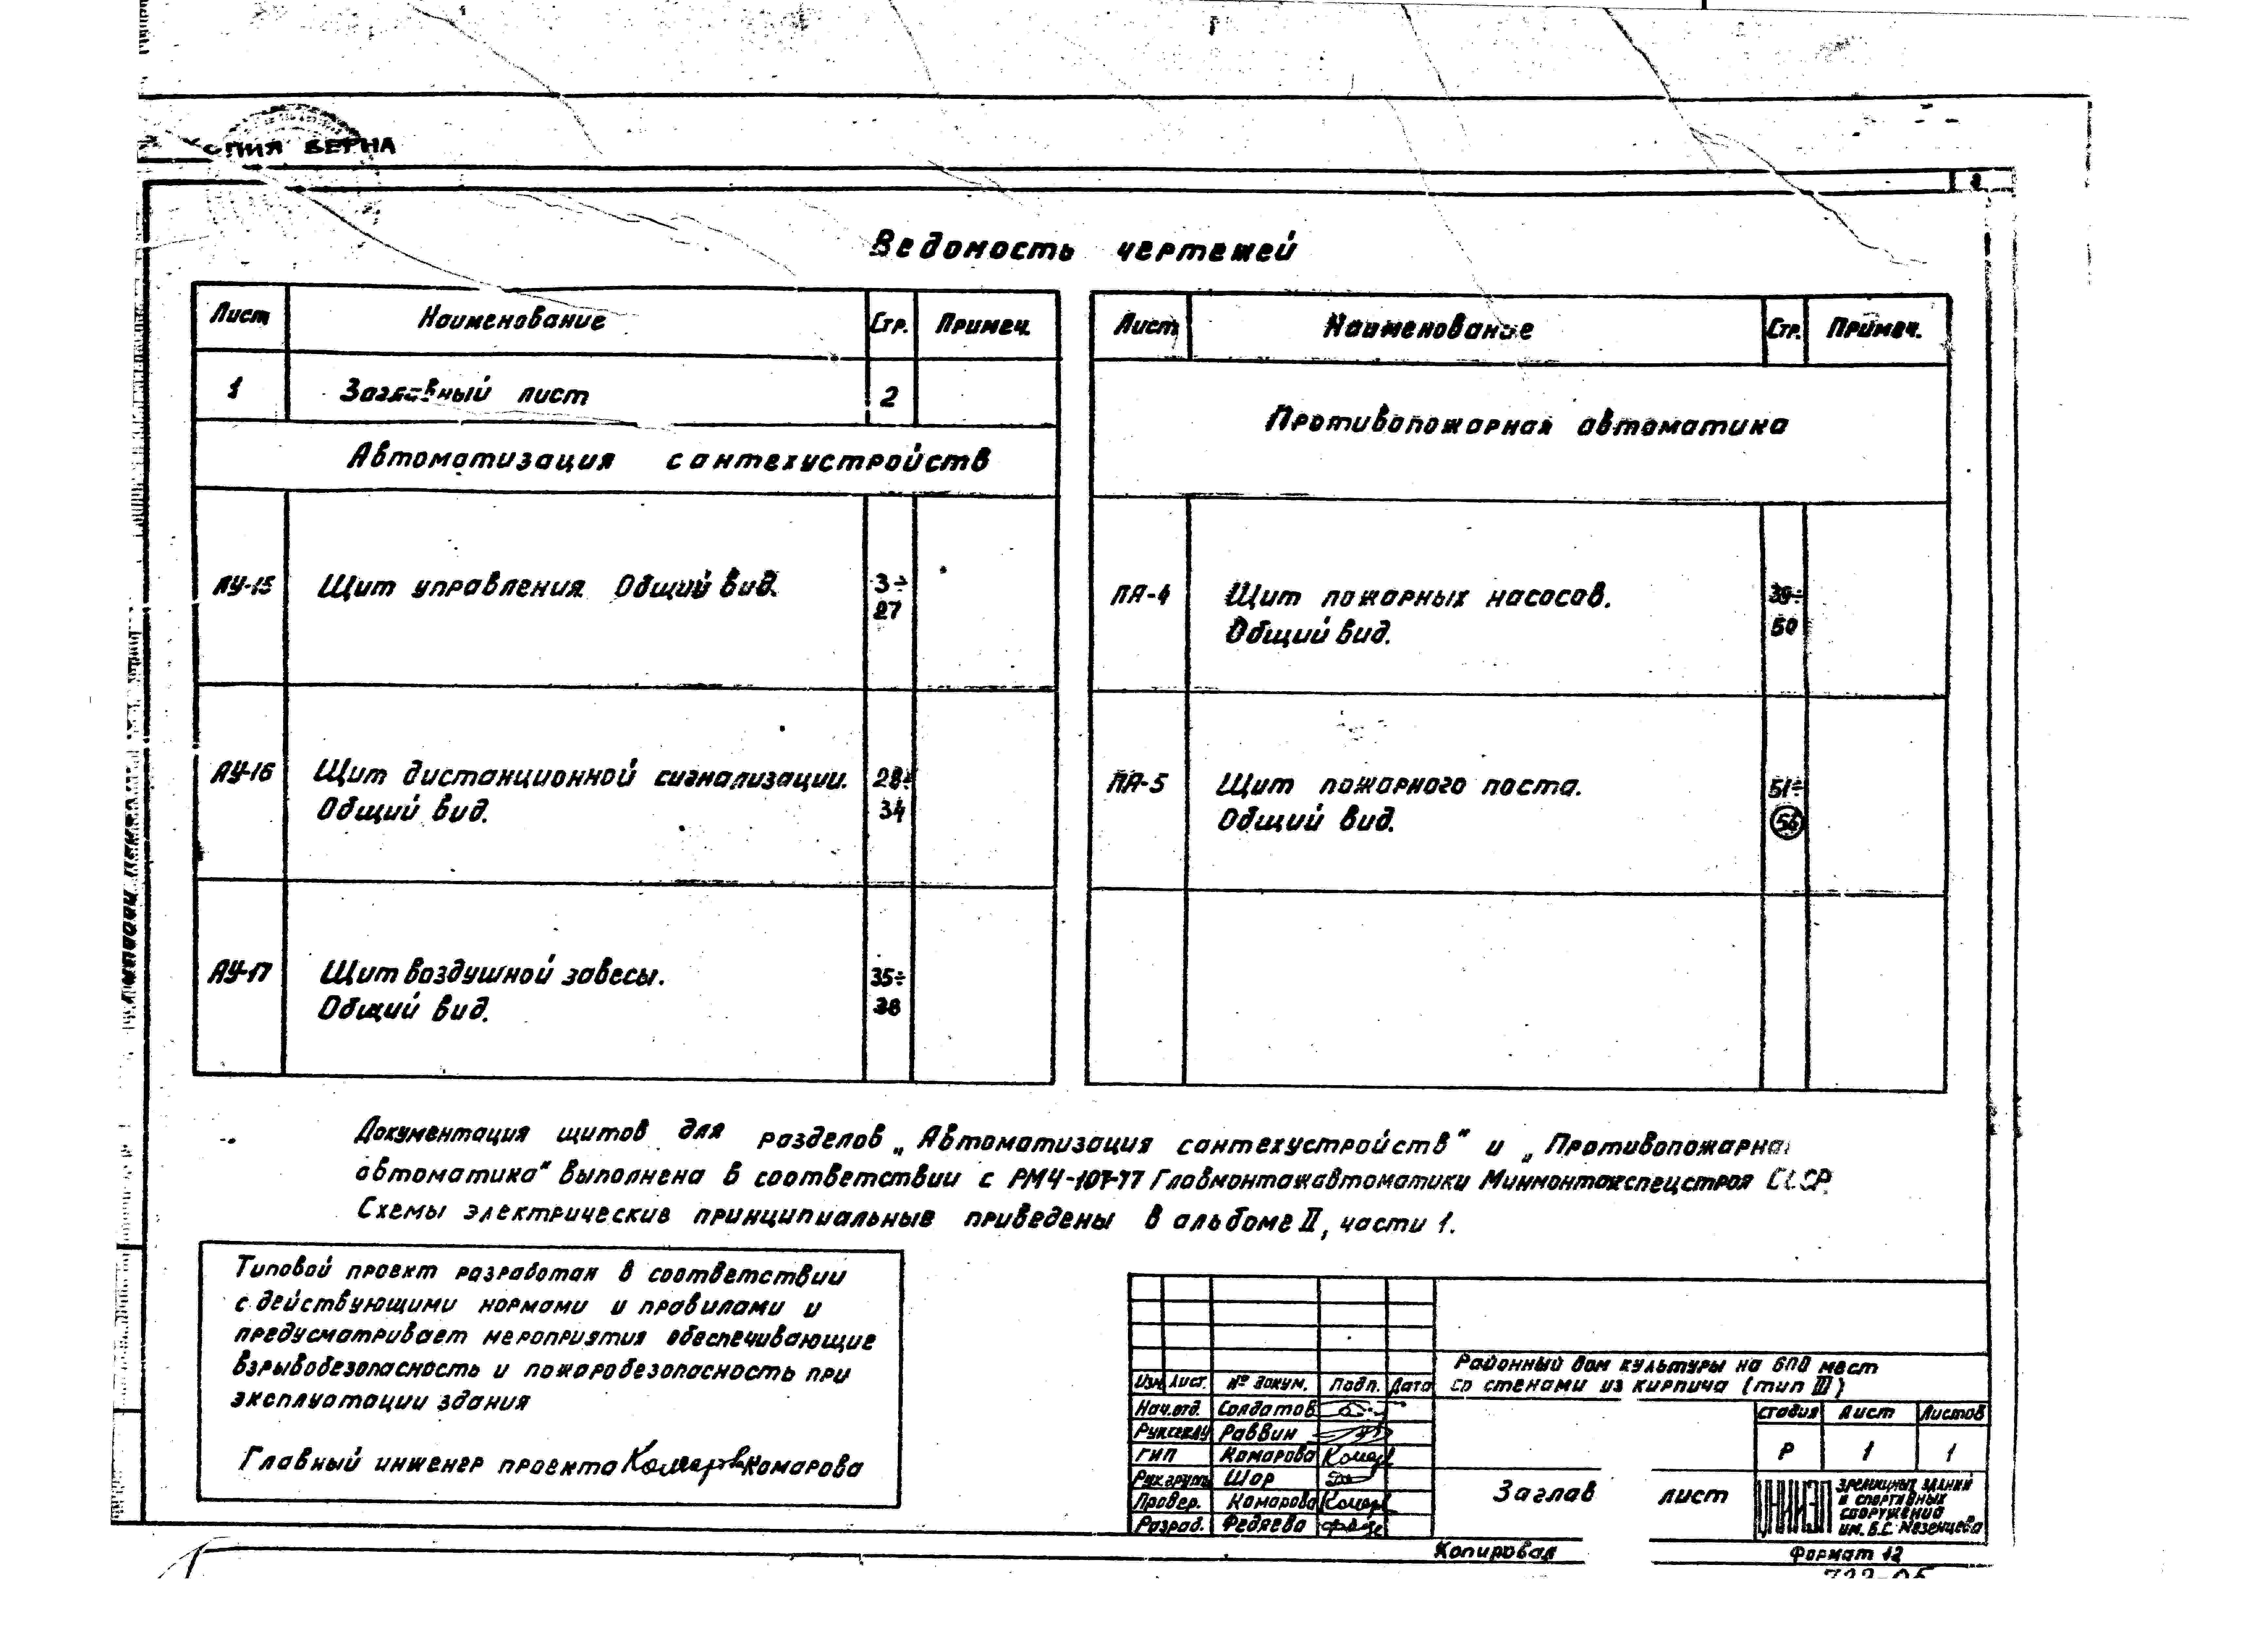 КОПИЯ ВЕРНА
2
Ведомость чертежей
Лист Наименование Стр. Примеч.
1 Заглавный лист 2
Автоматизация сантехустройств
АУ-15 Щит управления Общий вид. 3÷
27
АУ-16 Щит дистанционной сигнализации. 28÷
Общий вид. 34
АУ-17 Щит воздушной завесы. 35÷
Общий вид. 38
Лист Наименование Стр. Примеч.
Противопожарная автоматика
ПА-4 Щит пожарных насосов. 39÷
Общий вид. 50
ПА-5 Щит пожарного поста. 51÷
Общий вид.
Документация щитов для разделов „Автоматизация сантехустройств" и „Противопожарная
автоматика" выполнена в соответствии с РМ4-107-77 Главмонтажавтоматики Минмонтажспецстроя СССР.
Схемы электрические принципиальные приведены в альбоме II, части 1.
Типовой проект разработан в соответствии
с действующими нормами и правилами и
предусматривает мероприятия обеспечивающие
взрывобезопасность и пожаробезопасность при
эксплуатации здания
Главный инженер проекта Комарова Комарова
Районный дом культуры на 600 мест
со стенами из кирпича (тип III)
Изм. Лист. № докум. Подп. Дата
Нач.отд. Солдатов
Раввин
ГИП Комарова
Рук.групп Шор
Провер. Комарова
Разраб. Федяева
Стадия Лист Листов
Р 1 1
Заглав лист
ЦНИИЭП зрелищных зданий
и спортивных
сооружений
им. Б.С. Мезенцева
Копировал Формат 12